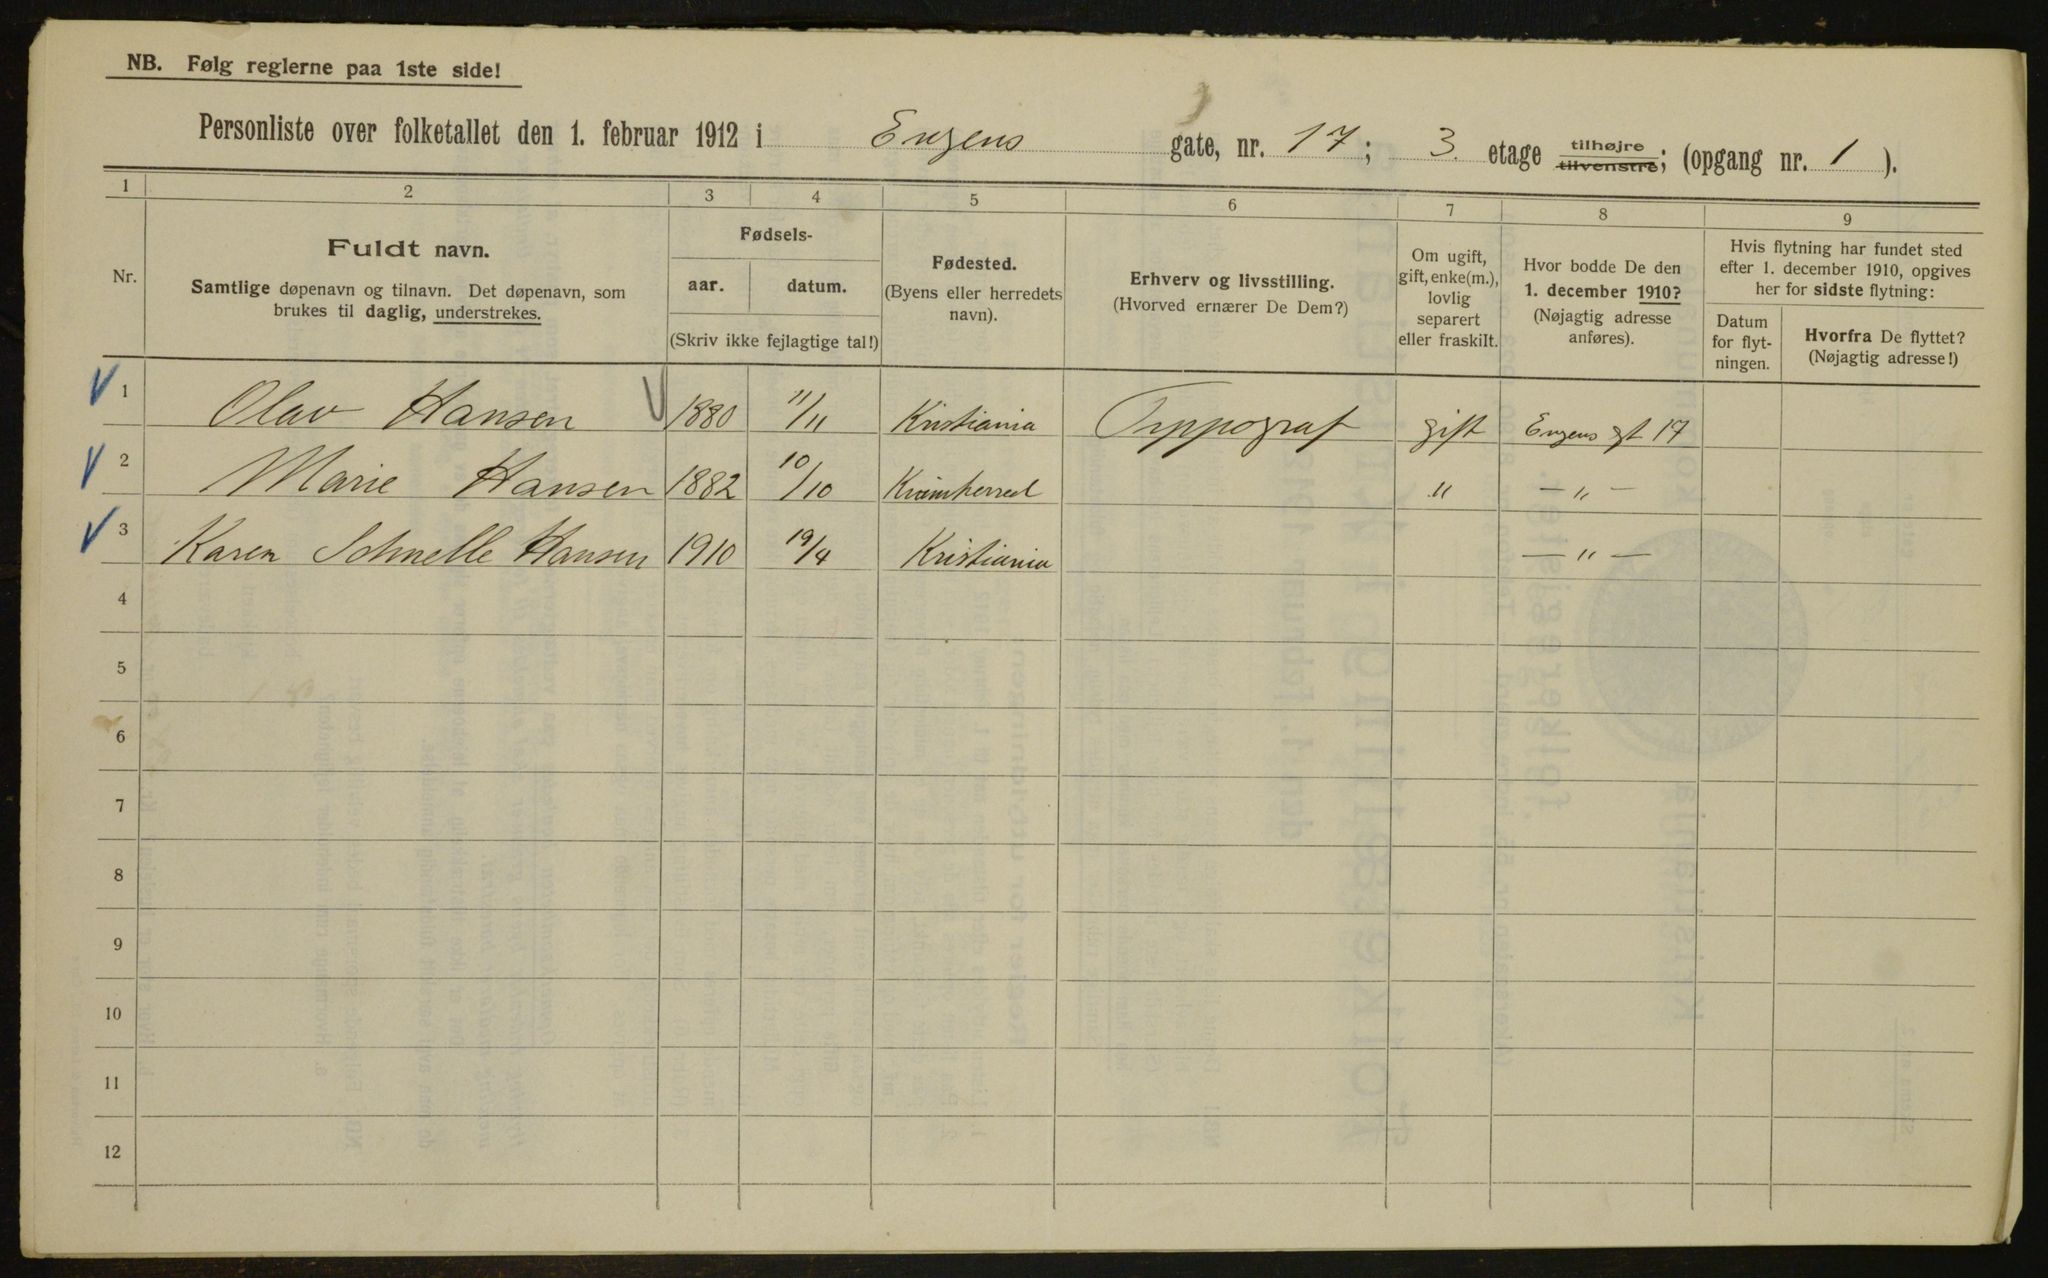 NB. Følg reglerne paa 1ste side!
Personliste over folketallet den 1. februar 1912 i Eugens gate, nr. 17; 3. etage tilhøjre tilvenstre; (opgang nr. 1).
1 2 3 4 5 6 7 8 9
Nr.
Fuldt navn.
Samtlige døpenavn og tilnavn. Det døpenavn, som
brukes til daglig, understrekes.
Fødsels-
aar. datum.
(Skriv ikke fejlagtige tal!)
Fødested.
(Byens eller herredets
navn).
Erhverv og livsstilling.
(Hvorved ernærer De Dem?)
Om ugift,
gift, enke(m.),
lovlig
separert
eller fraskilt.
Hvor bodde De den
1. december 1910?
(Nøjagtig adresse
anføres).
Hvis flytning har fundet sted
efter 1. december 1910, opgives
her for sidste flytning:
Datum
for flyt-
ningen.
Hvorfra De flyttet?
(Nøjagtig adresse!)
1 Olav Hansen 1880 11/11 Kristiania Typograf gift Eugens gt 17
2 Marie Hansen 1882 10/10 " — " —
3 Karen Schnelle Hansen 1910 19/4 Kristiania — " —
4
5
6
7
8
9
10
11
12